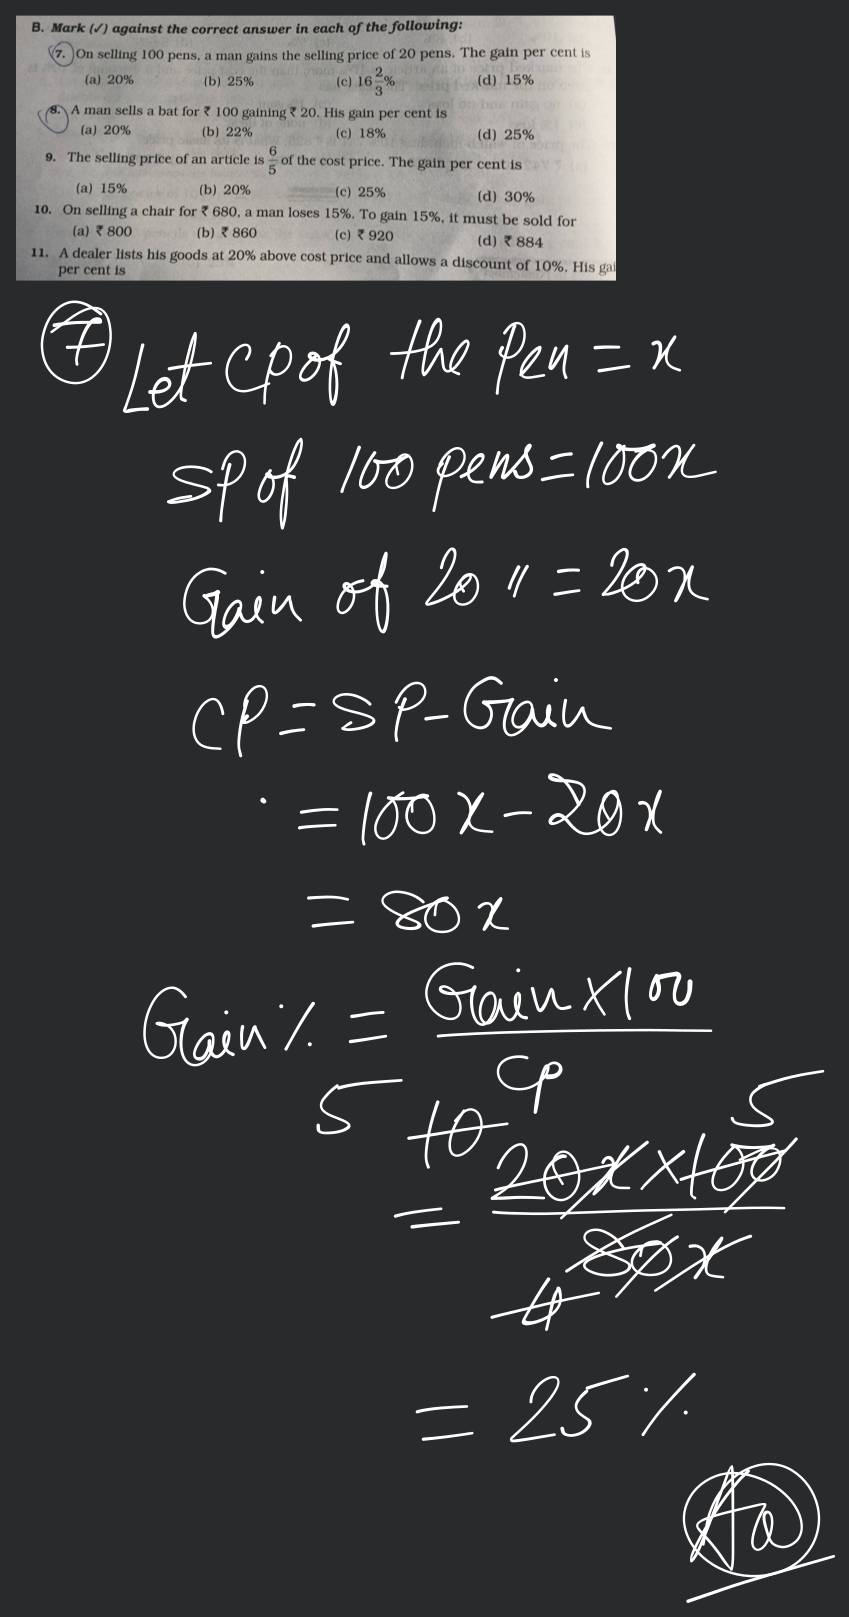 B. Mark (✓) against the correct answer in each of the following:
7. On selling 100 pens, a man gains the selling price of 20 pens. The gain per cent is
(a) 20% (b) 25% (c) 16 2/3 % (d) 15%
8. A man sells a bat for ₹ 100 gaining ₹ 20. His gain per cent is
(a) 20% (b) 22% (c) 18% (d) 25%
9. The selling price of an article is 6/5 of the cost price. The gain per cent is
(a) 15% (b) 20% (c) 25% (d) 30%
10. On selling a chair for ₹ 680, a man loses 15%. To gain 15%, it must be sold for
(a) ₹ 800 (b) ₹ 860 (c) ₹ 920 (d) ₹ 884
11. A dealer lists his goods at 20% above cost price and allows a discount of 10%. His gai
per cent is
7 Let CP of the Pen = x
SP of 100 pens = 100x
Gain of 20 〃 = 20x
CP = SP - Gain
= 100x - 20x
= 80x
Gain % = Gain × 100
CP
5 10 5
= 20x × 100
80x
4
= 25 %